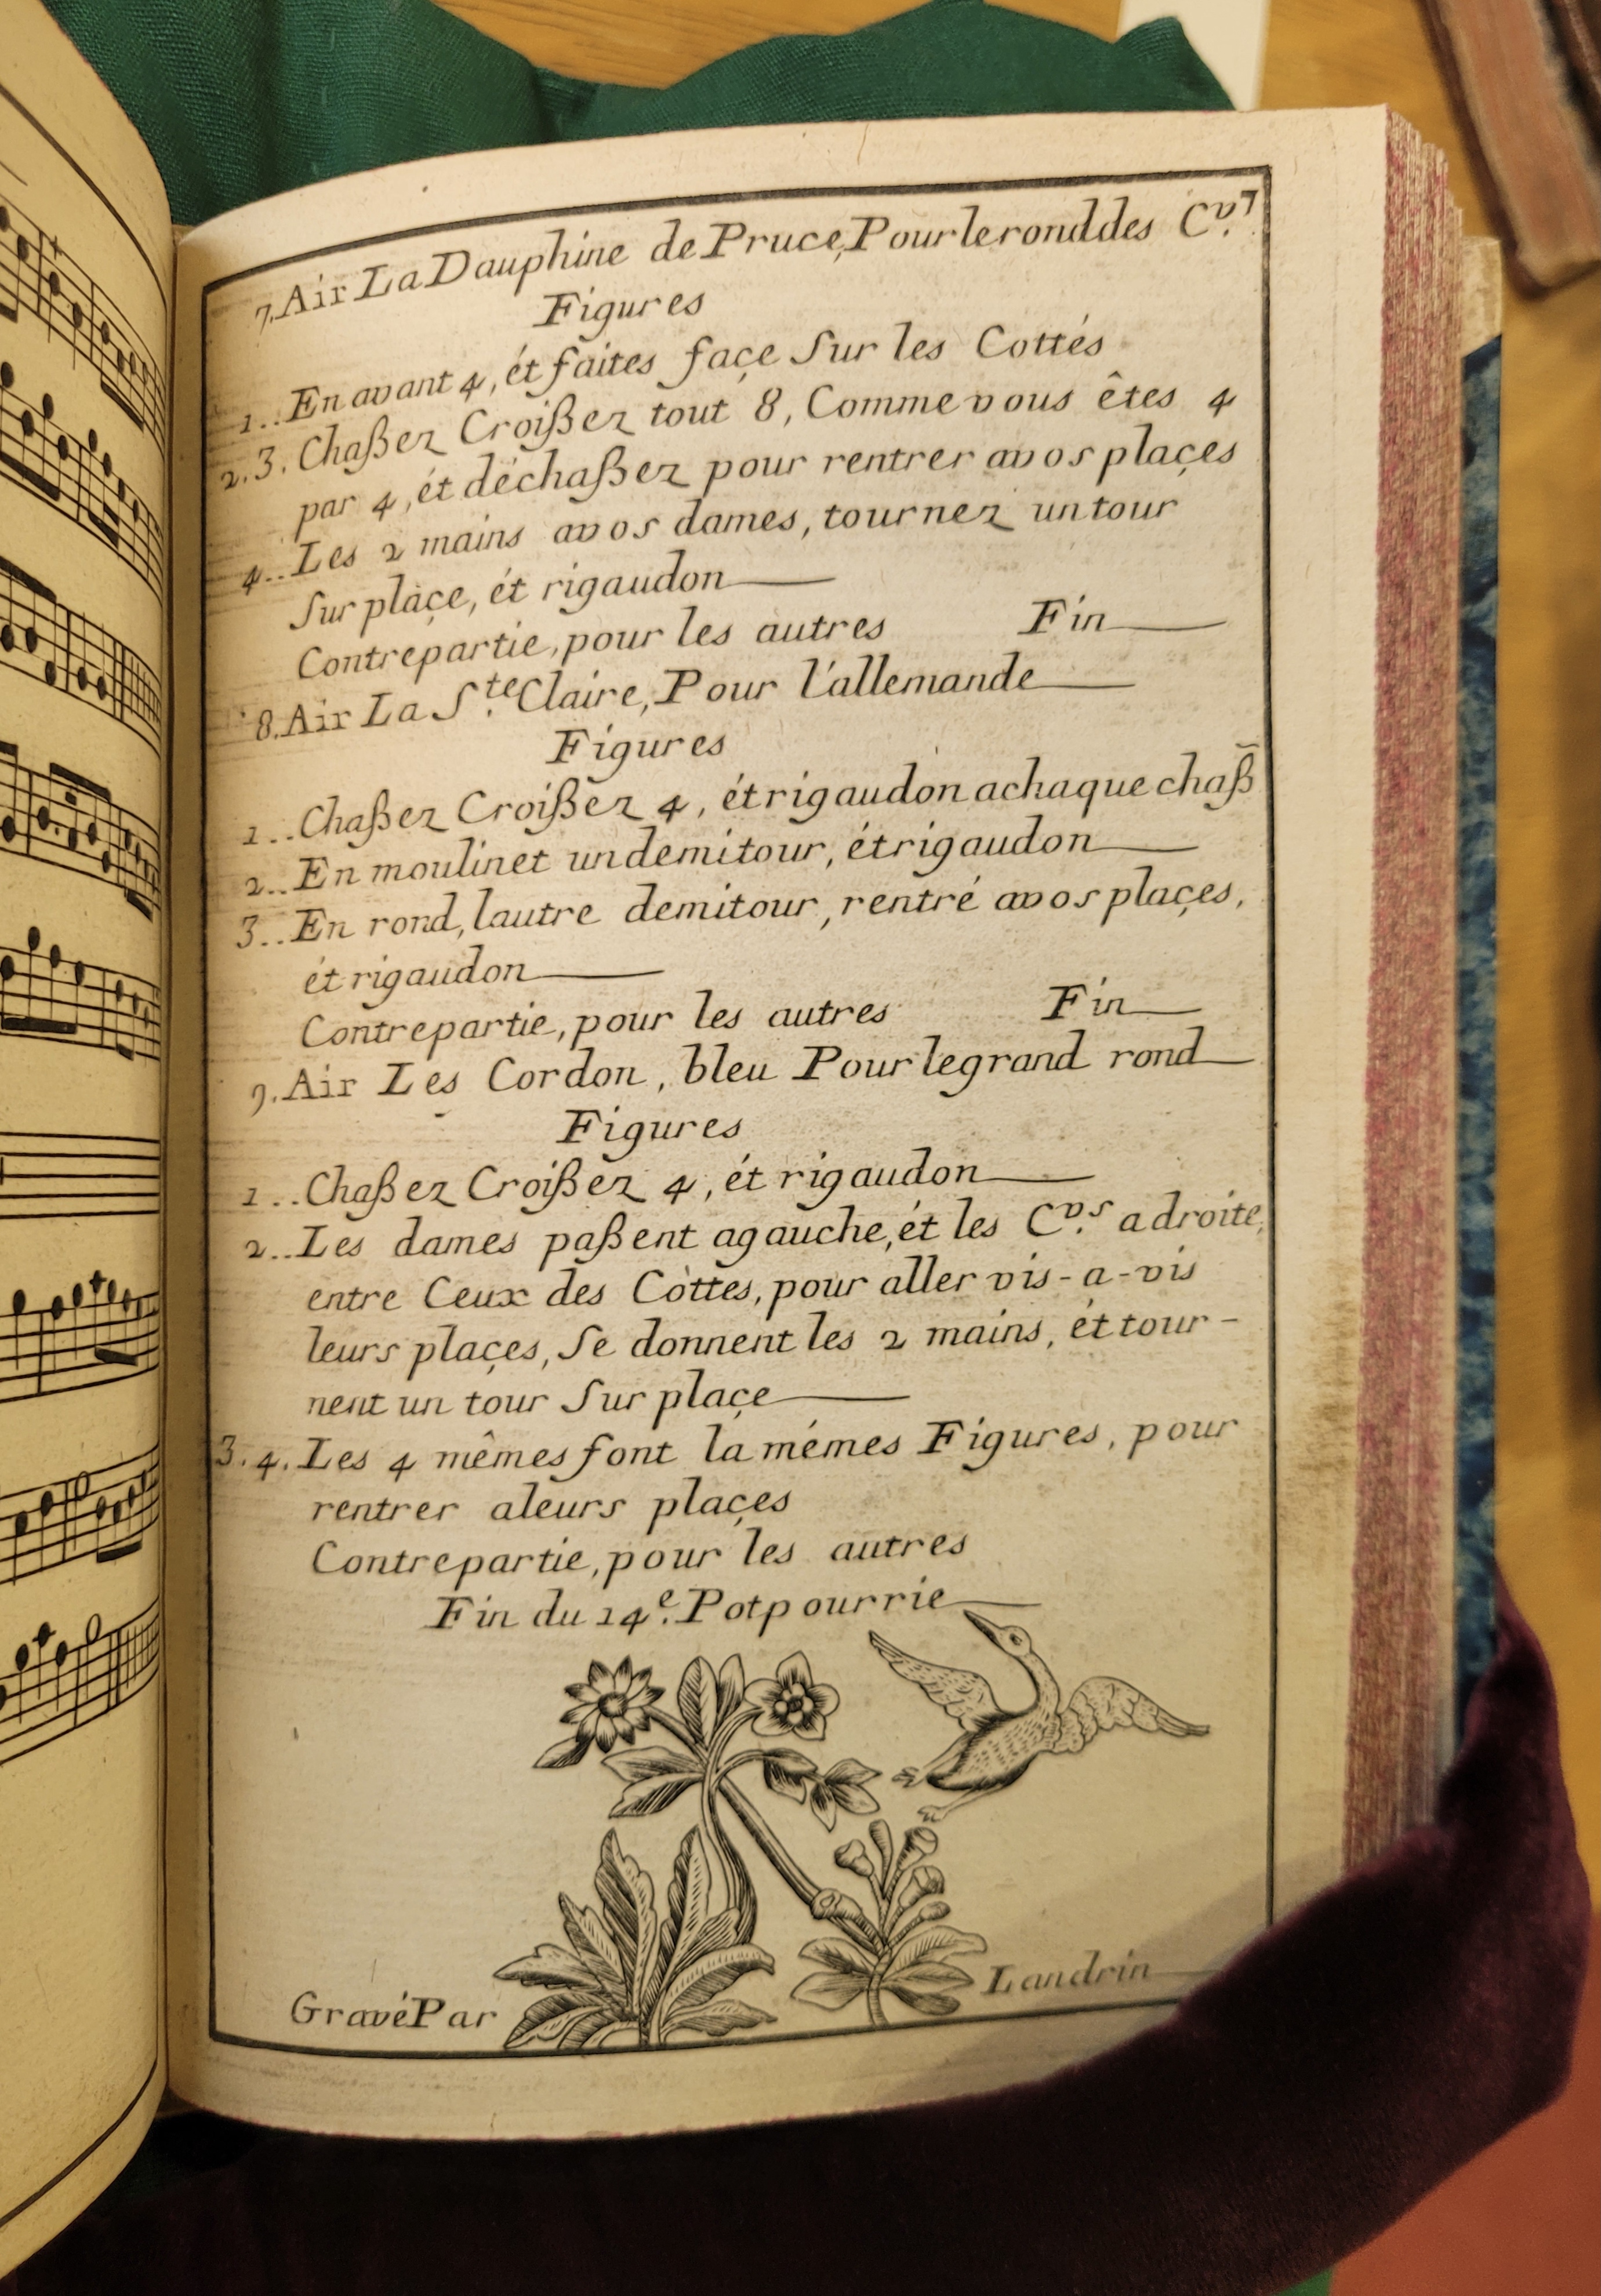 7. Air La Dauphine de Pruce, Pour le rond des C.v⁊
Figures
1.. En avant 4, ét faites façe Sur les Cottés
2.3. Chaßez Croißez tout 8, Comme vous êtes 4
par 4, ét déchaßez pour rentrer avos plaçes
4.. Les 2 mains avos dames, tournez un tour
Sur plaçe, ét rigaudon
Contrepartie, pour les autres Fin
8. Air La S.te Claire, Pour l'allemande
Figures
1.. Chaßez Croißez 4, ét rigaudon achaque chaß̃
2.. En moulinet un demi tour, ét rigaudon
3.. En rond, lautre demi tour, rentré avos plaçes,
ét rigaudon
Contrepartie, pour les autres Fin
9. Air Les Cordon, bleu Pour le grand rond
Figures
1.. Chaßez Croißez 4, ét rigaudon
2.. Les dames paßent agauche, ét les C.vs a droite,
entre Ceux des Còttes, pour aller vis-a-vis
leurs plaçes, Se donnent les 2 mains, ét tour-
nent un tour Sur plaçe
3.4. Les 4 mêmes font la mémes Figures, pour
rentrer aleurs plaçes
Contrepartie, pour les autres
Fin du 14.e Potpourrie
Gravé Par Landrin